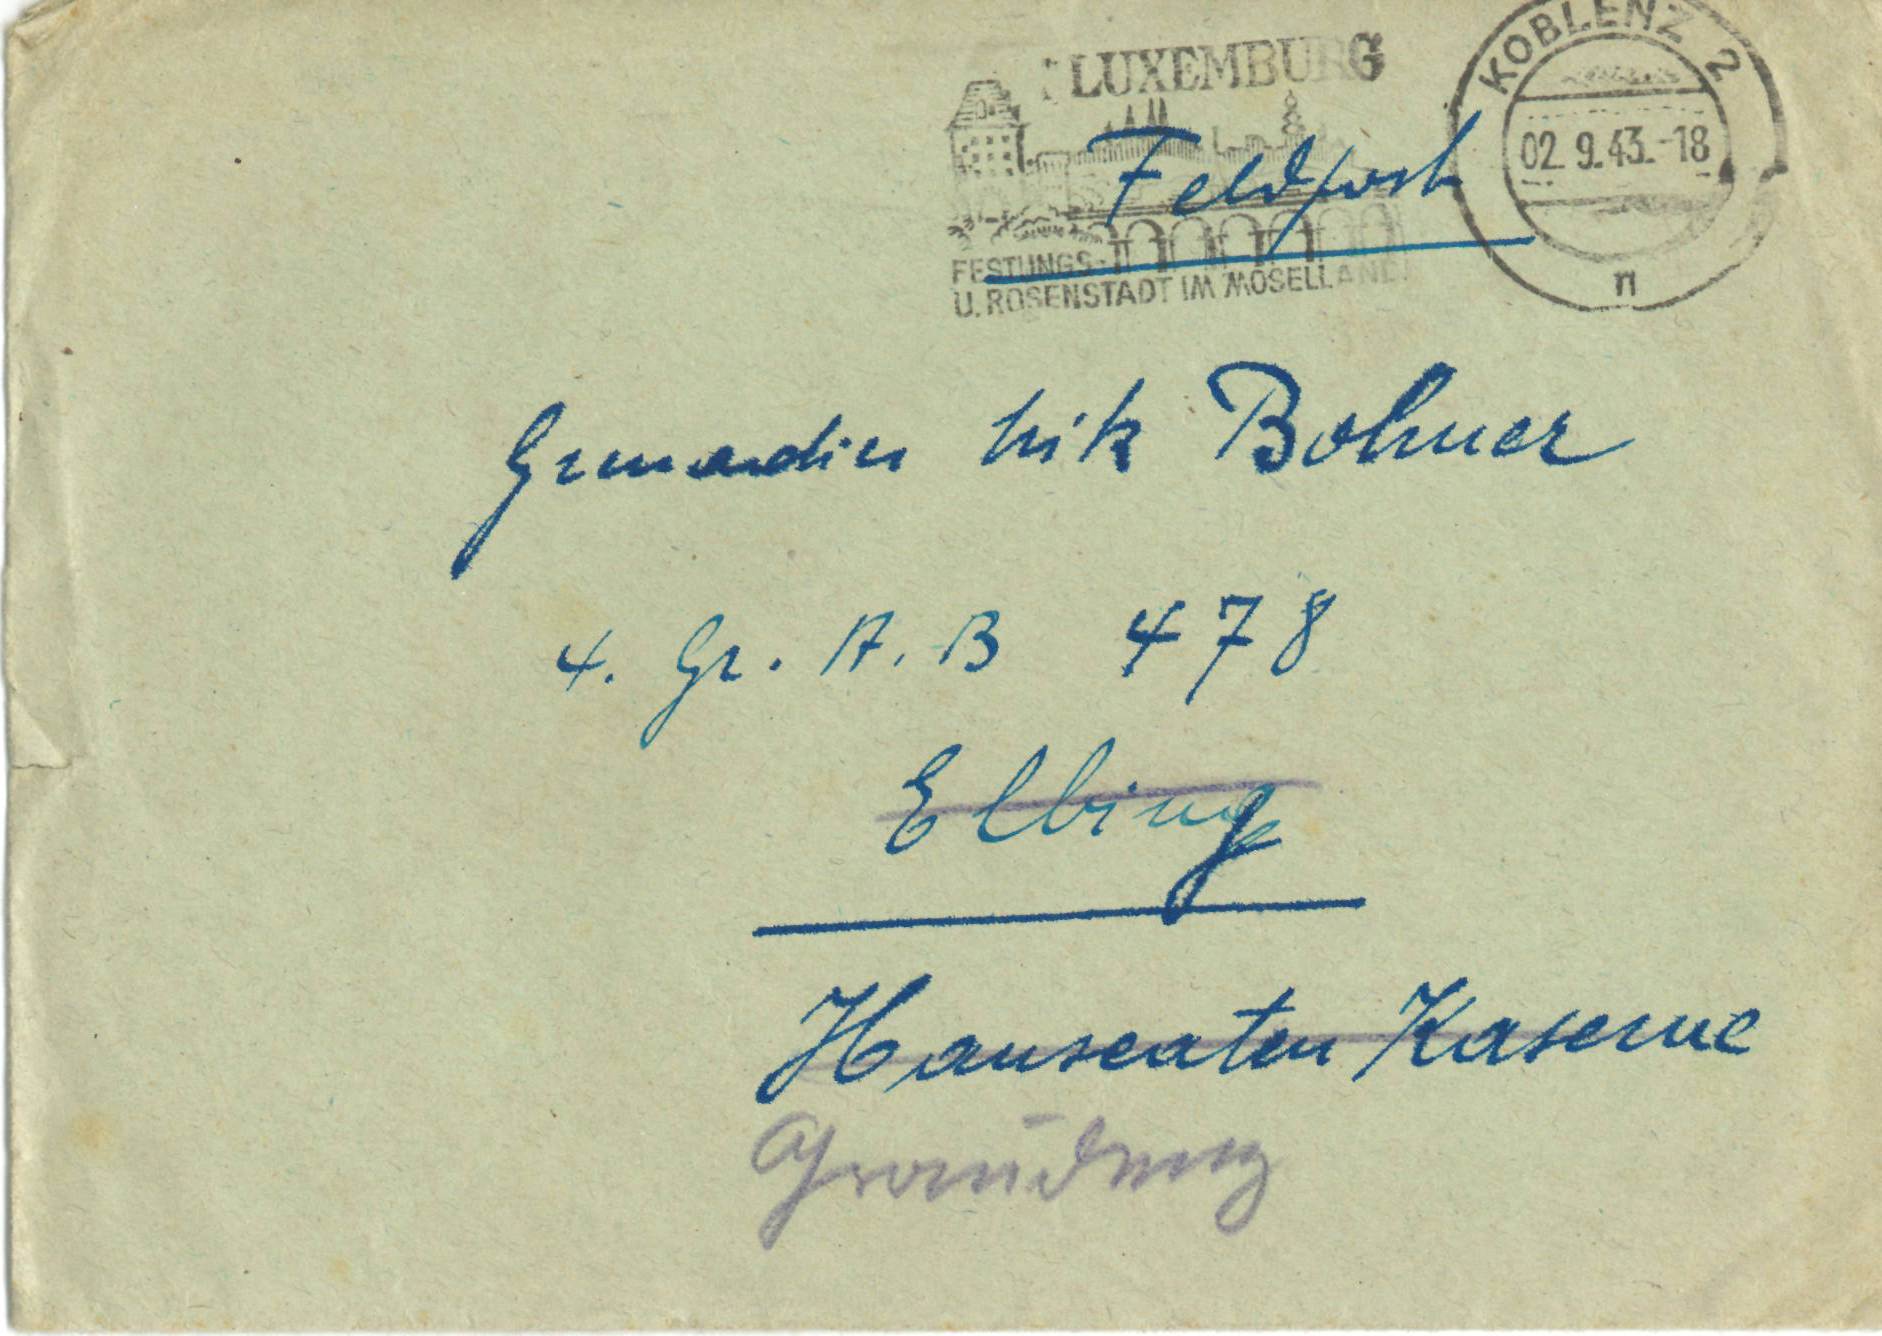 LUXEMBURG
FESTUNGS-
U. ROSENSTADT IM MOSELLAND
KOBLENZ 2
02.9.43.-18
n
Feldpost
Grenadier Nik Bohner
4. Gr. A. B 478
Elbing
Hanseaten Kaserne
Graudenz